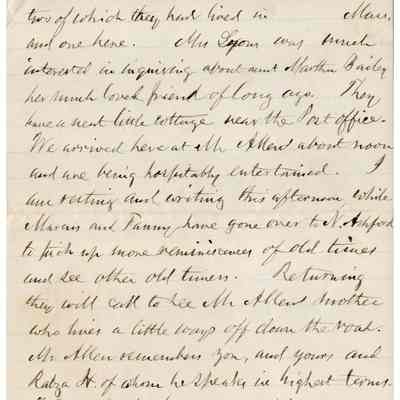 two of which they had lived in Mass.
and one here. Mrs Lyons was much
interested in inquiring about aunt Martha Bailey
her much loved friend of long ago. They
have a neat little cottage near the Post office.
We arrived here at Mr Allens about noon
and are being hospitably entertained. I
am resting and writing this afternoon while
Marcus and Fanny have gone over to N. Ashford
to pick up more reminiscences of old times
and see other old timers. Returning
they will call to see Mr Allens brother
who lives a little ways off down the road.
Mr Allen remembers you, and yours and
H. of whom he speaks in highest terms.